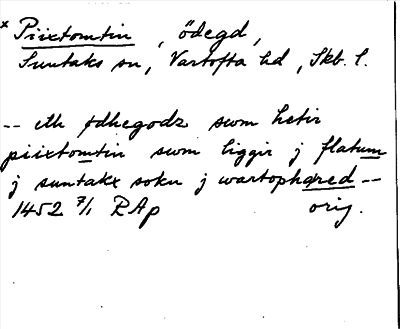 x Piixtomtin, ödegd,
Suntaks sn, Vartofta hd, Skb. l.
-- eth ødhegodz swm hetir
piixtomtin swm liggir j flatum
j suntakx sokn j wartophæred --
1452 7/1 RAp orig.